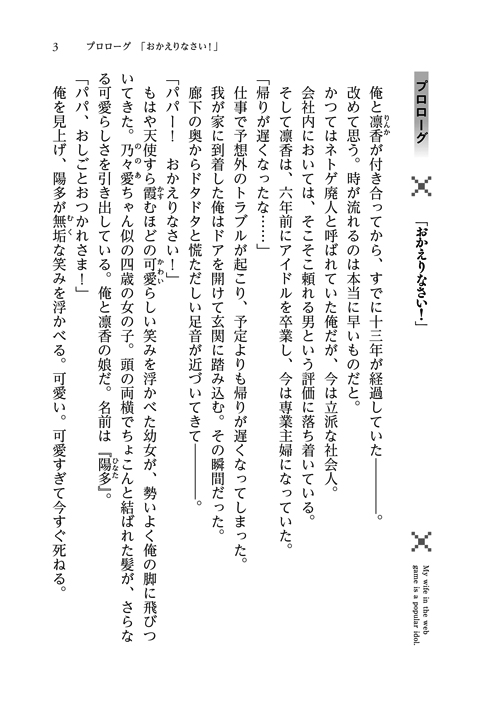 3 プロローグ 「おかえりなさい！」
プロローグ
「おかえりなさい！」
My wife in the web
game is a popular idol.
俺と凛香が付き合ってから、すでに十三年が経過していた――――。
りんか
改めて思う。時が流れるのは本当に早いものだと。
かつてはネトゲ廃人と呼ばれていた俺だが、今は立派な社会人。
会社内においては、そこそこ頼れる男という評価に落ち着いている。
そして凛香は、六年前にアイドルを卒業し、今は専業主婦になっていた。
「帰りが遅くなったな……」
仕事で予想外のトラブルが起こり、予定よりも帰りが遅くなってしまった。
我が家に到着した俺はドアを開けて玄関に踏み込む。その瞬間だった。
廊下の奥からドタドタと慌ただしい足音が近づいてきて――――。
「パパー！　おかえりなさい！」
もはや天使すら霞むほどの可愛らしい笑みを浮かべた幼女が、勢いよく俺の脚に飛びつ
かす
かわい
いてきた。乃々愛ちゃん似の四歳の女の子。頭の両横でちょこんと結ばれた髪が、さらな
ののあ
る可愛らしさを引き出している。俺と凛香の娘だ。名前は『陽多』。
ひなた
「パパ、おしごとおつかれさま！」
俺を見上げ、陽多が無垢な笑みを浮かべる。可愛い。可愛すぎて今すぐ死ねる。
むく